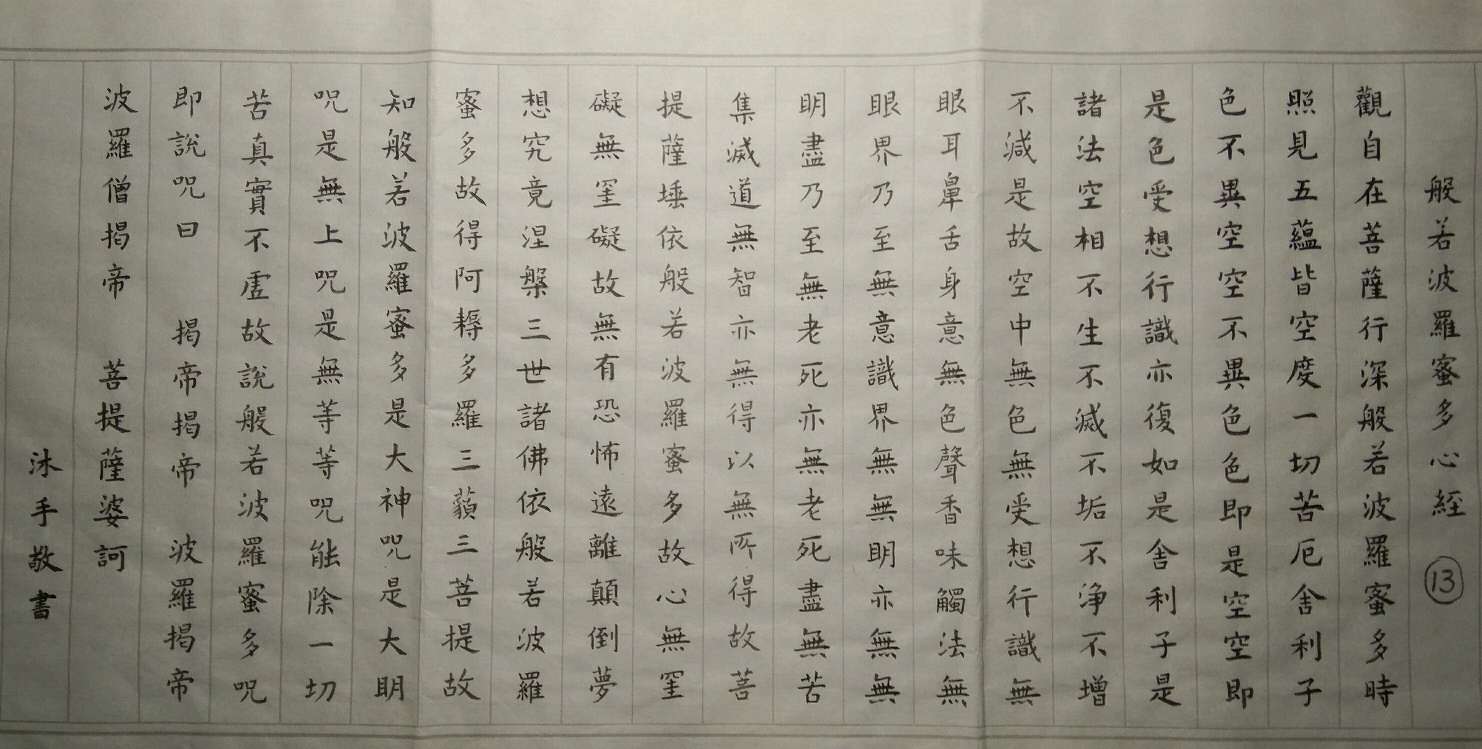 般若波羅蜜多心経 ⑬
觀自在菩薩行深般若波羅蜜多時
照見五蘊皆空度一切苦厄舍利子
色不異空空不異色色即是空空即
是色受想行識亦復如是舍利子是
諸法空相不生不滅不垢不淨不增
不減是故空中無色無受想行識無
眼耳鼻舌身意無色聲香味觸法無
眼界乃至無意識界無無明亦無無
明盡乃至無老死亦無老死盡無苦
集滅道無智亦無得以無所得故菩
提薩埵依般若波羅蜜多故心無罣
礙無罣礙故無有恐怖遠離顛倒夢
想究竟涅槃三世諸佛依般若波羅
蜜多故得阿耨多羅三藐三菩提故
知般若波羅蜜多是大神咒是大明
咒是無上咒是無等等咒能除一切
苦真實不虛故說般若波羅蜜多咒
即說咒曰 揭帝揭帝 波羅揭帝
波羅僧揭帝 菩提薩婆訶
沐手敬書